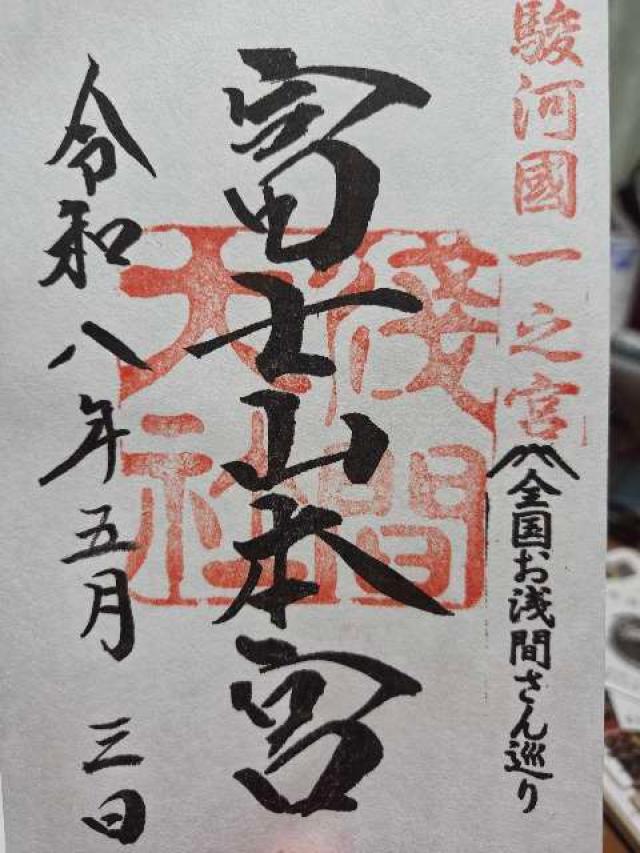 駿河國一之宮
全国お浅間さん巡り
富士山本宮
淺間
大社
令和八年五月三日